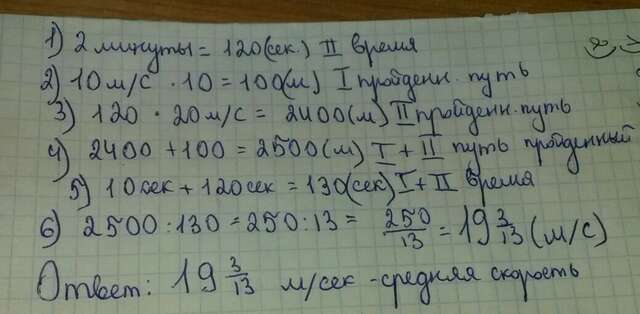 1) 2 минуты = 120(сек.) II время
2) 10 м/с · 10 = 100(м) I пройденн. путь
3) 120 · 20 м/с = 2400(м) II пройденн. путь
4) 2400 + 100 = 2500(м) I + II путь пройденный
5) 10 сек + 120 сек = 130(сек) I + II время
6) 2500 : 130 = 250 : 13 = 250/13 = 19 3/13 (м/с)
Ответ: 19 3/13 м/сек - средняя скорость